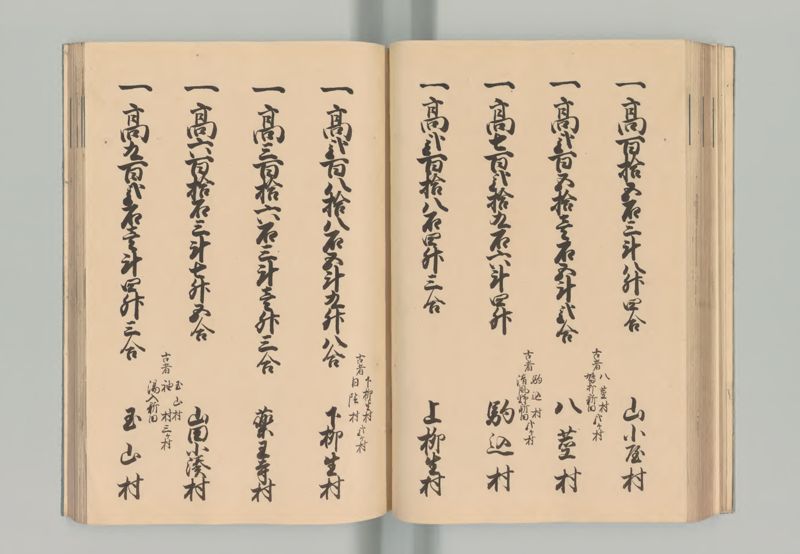 一高百拾五石三斗八升四合 山小屋村
一高弐百五拾壱石五斗弐合 八莖村
古者 八莖村
一高七百弐拾九石六斗四升 駒込村
古者 駒込村
清風野新田
一高弐百拾八石四升三合 上柳生村
一高弐百八拾八石五斗九升八合 下柳生村
古者 下柳生村
一高三百拾六石三斗壱升三合 藥王寺村
一高六百拾石三斗七升五合 山田小湊村
一高九百弐石壱斗四升三合 玉山村
古者 玉山村
袖村 三ヶ村
湯入新田